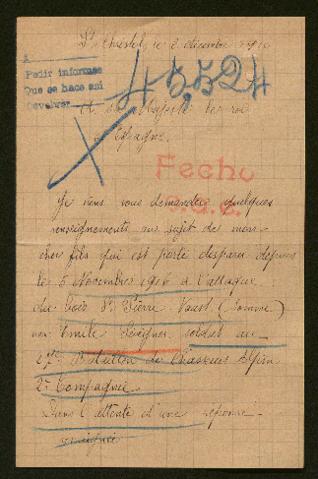 St Christol, le 2 décembre 1916
A
Pedir informes
Que se hace así
Devolver
45,524
A sa Majesté le roi
d'Espagne.
Fecho
Je viens vous demander quelques
renseignements au sujet de mon
cher fils qui est porté disparu depuis
le 5 Novembre 1916 à l'attaque
du bois St Pierre Vaast (Somme)
nom Emile soldat au
Bataillon de Chasseurs Alpin
2e Compagnie.
Dans l'attente d'une réponse